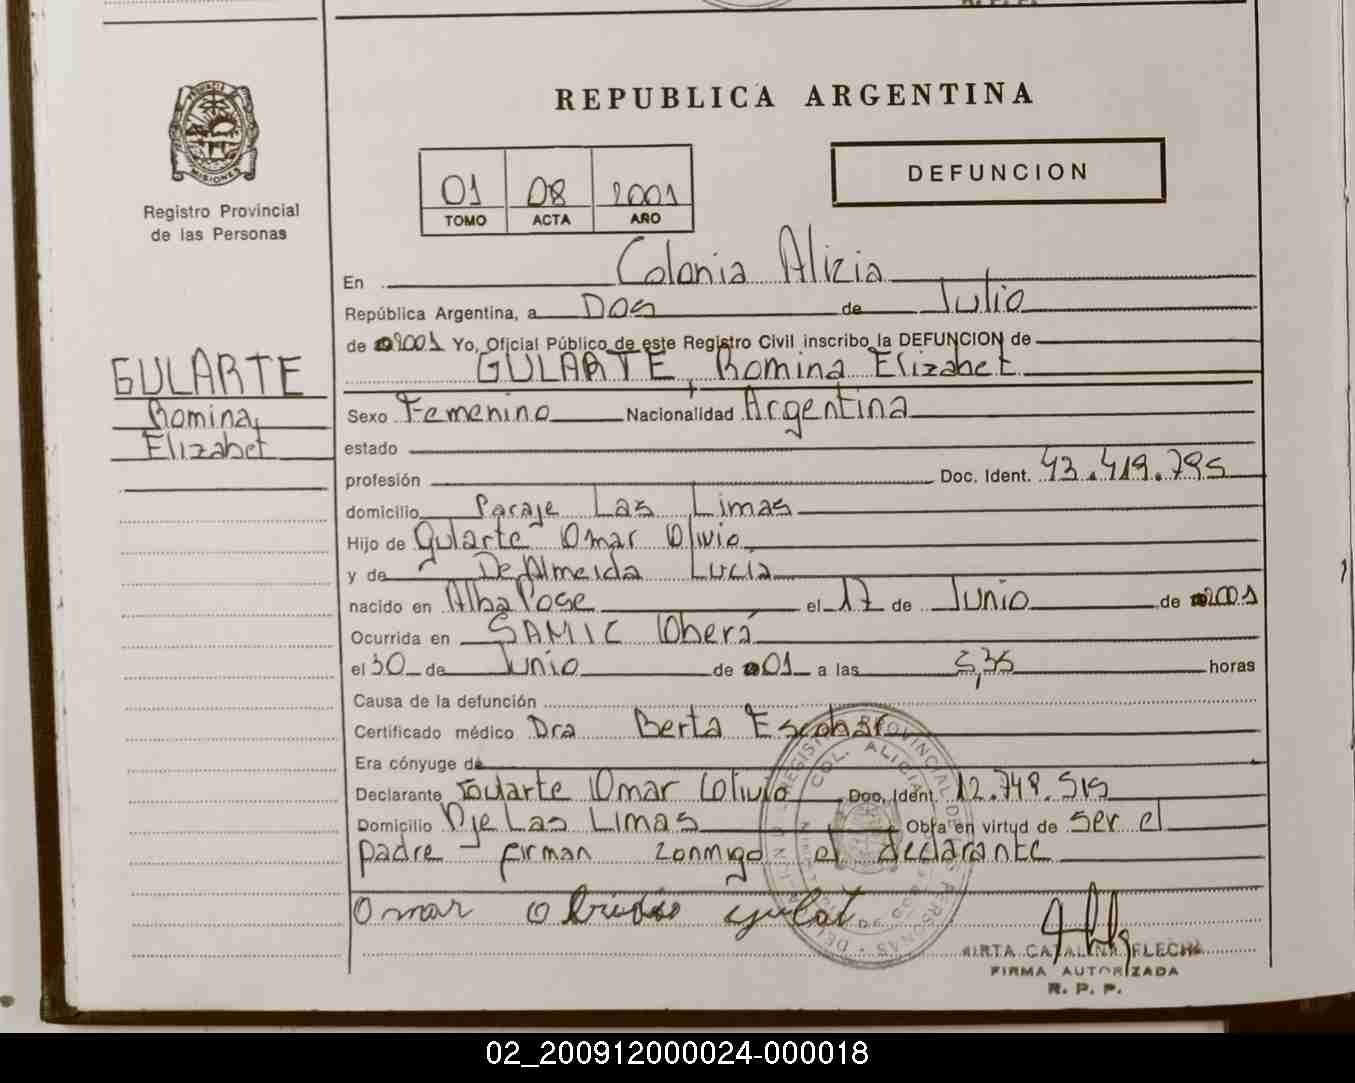 REPUBLICA ARGENTINA
PROVINCIA DE
MISIONES
Registro Provincial
de las Personas
01 08 2001
TOMO ACTA AÑO
DEFUNCION
En Colonia Alizia
República Argentina, a Dos de Julio
de 2001 Yo, Oficial Público de este Registro Civil inscribo la DEFUNCION de
GULARTE, Romina Elizabet
GULARTE
Romina,
Elizabet
Sexo Femenino Nacionalidad Argentina
estado
profesión Doc. Ident. 43.419.795
domicilio Paraje Las Limas
Hijo de Gularte Omar Olivio
y de De Almeida Lucia
nacido en Alba Pose el 17 de Junio de 2001
Ocurrida en SAMIC Oberá
el 30 de Junio de 01 a las 5,35 horas
Causa de la defunción
Certificado médico Dra Berta Escobar
Era cónyuge de
Declarante Gularte Omar Olivio Doc. Ident. 12.749.515
Domicilio Pje Las Limas Obra en virtud de ser el
padre firman conmigo el declarante
Omar
MIRTA CATALINA FLECHA
FIRMA AUTORIZADA
R. P. P.
COL. ALICIA
02_200912000024-000018